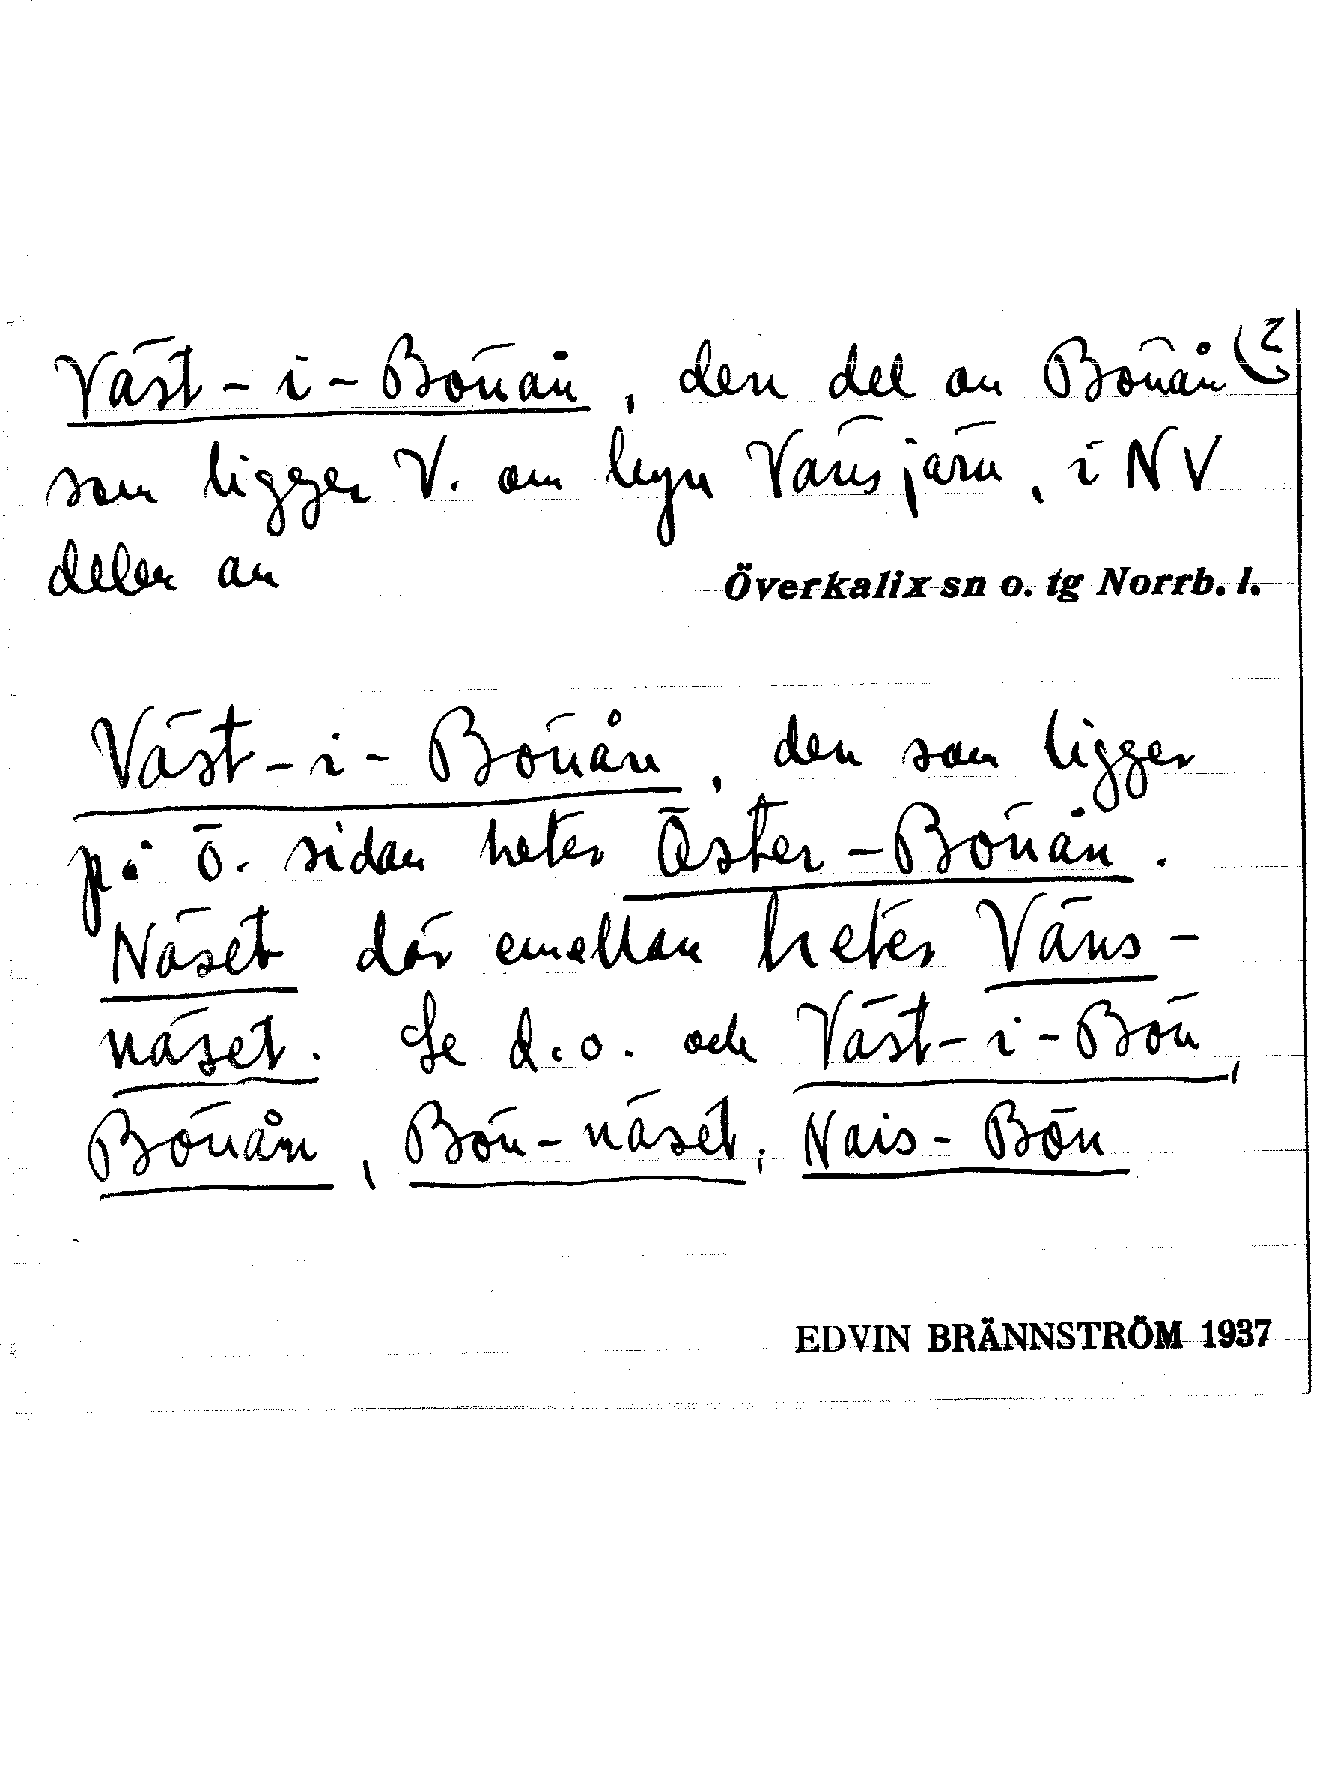 Väst-i-Bönån, den del av Bönån (2
som ligger V. om byn Vänsjärv, i NV
delen av Överkalix sn o. tg Norrb. l.
Väst-i-Bönån, den som ligger
på ö. sidan heter Öster-Bönån.
Näset där emellan heter Väns-
näset. Se d.o. och Väst-i-Bön,
Bönån, Bön-näset, Nais-Bön
EDVIN BRÄNNSTRÖM 1937